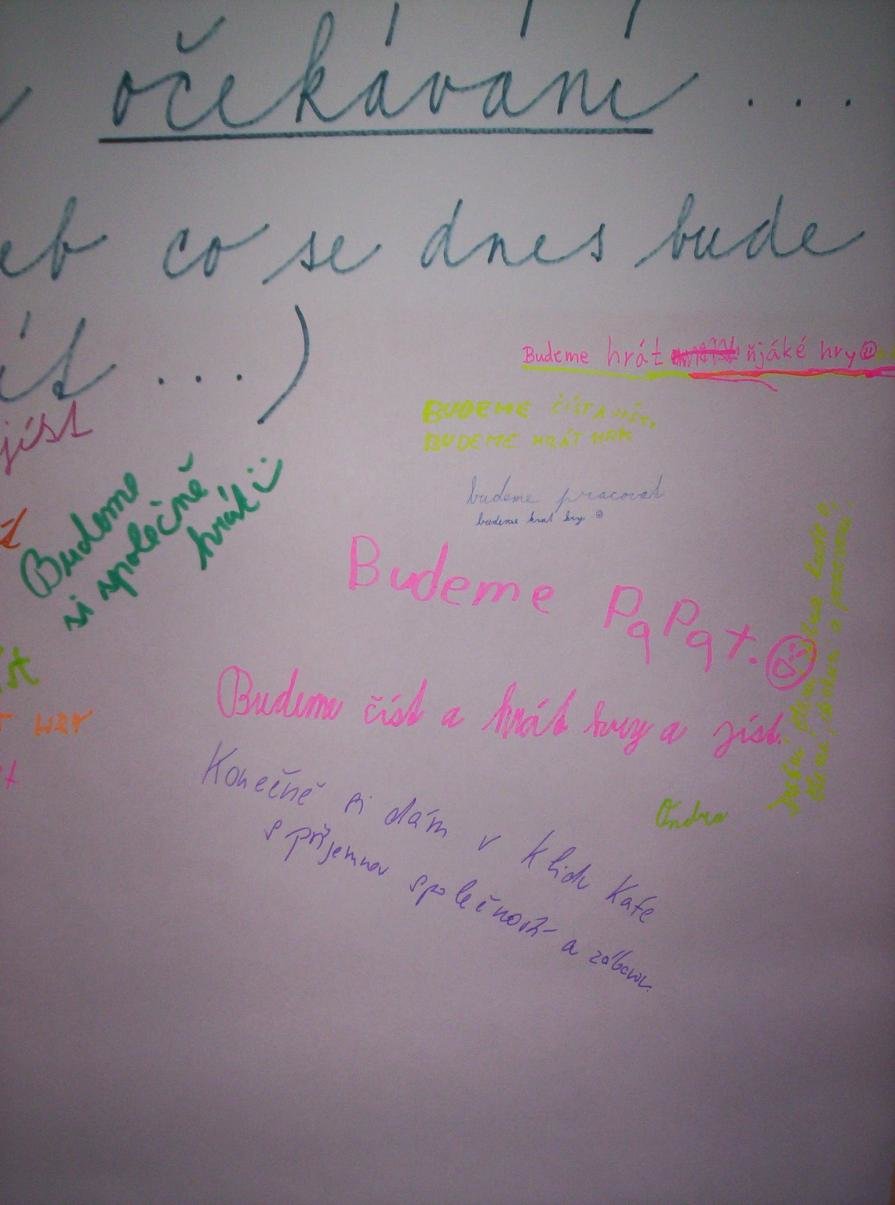 očekávání ...
co se dnes bude
... )
Budeme hrát ňjáké hry
jíst
BUDEME ČÍST A
BUDEME HRÁT HRY
Budeme
si společně
hrát
budeme pracovat
budeme hrát hry
Budeme PaPat.
Budeme číst a hrát hry a jíst.
HRY
Konečně si dám v klidu kafe
s příjemnou společností a zábavou.
Ondra